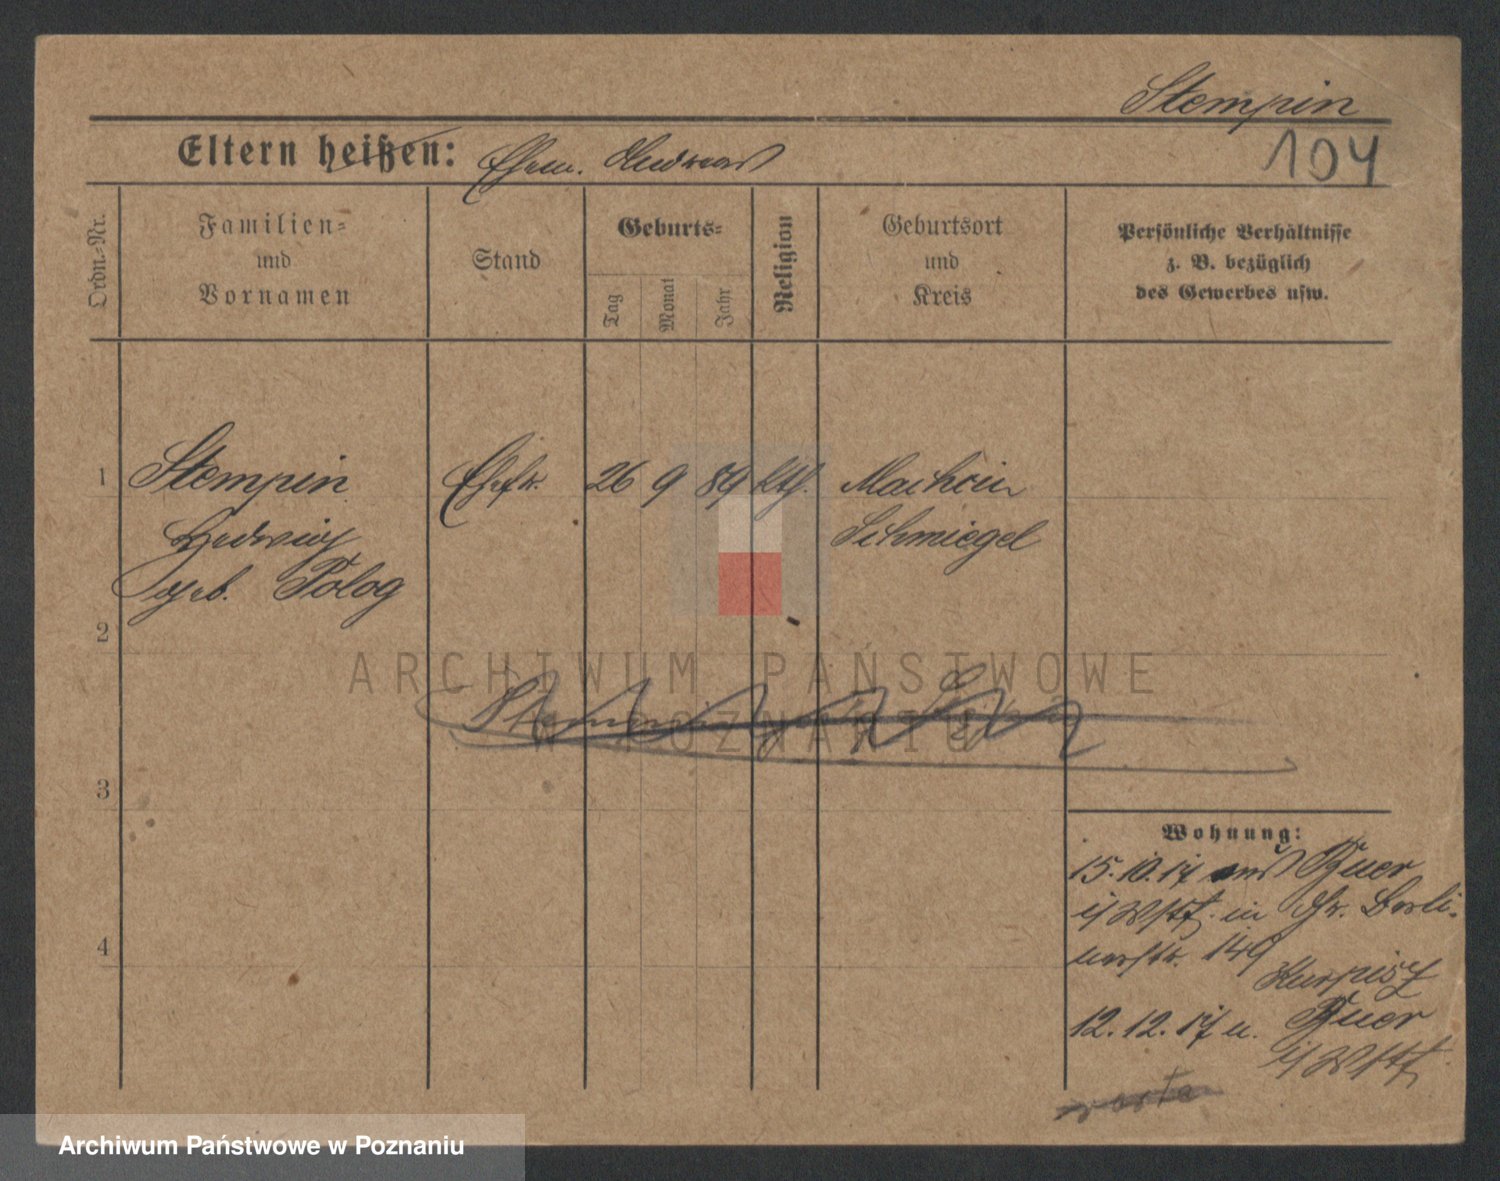 Stempin
104
Eltern heißen: Ehem. Andreas
Ordn.-Nr.
Familien-
und
Vornamen
Stand
Geburts-
Tag
Monat
Jahr
Religion
Geburtsort
und
Kreis
Persönliche Verhältnisse
z. B. bezüglich
des Gewerbes usw.
1 Stempin Ehefr. 26 9 89 kth. Machcin
Hedwig Schmiegel
geb. Polog
2
ARCHIWUM PAŃSTWOWE
W POZNANIU
Stempin
3
Wohnung:
15.10.17 aus Buer
i/Wstf. in Gr. Berli-
nerstr. 149
Kurpisz
4
12.12.17 n. Buer
i/Wstf.
Archiwum Państwowe w Poznaniu